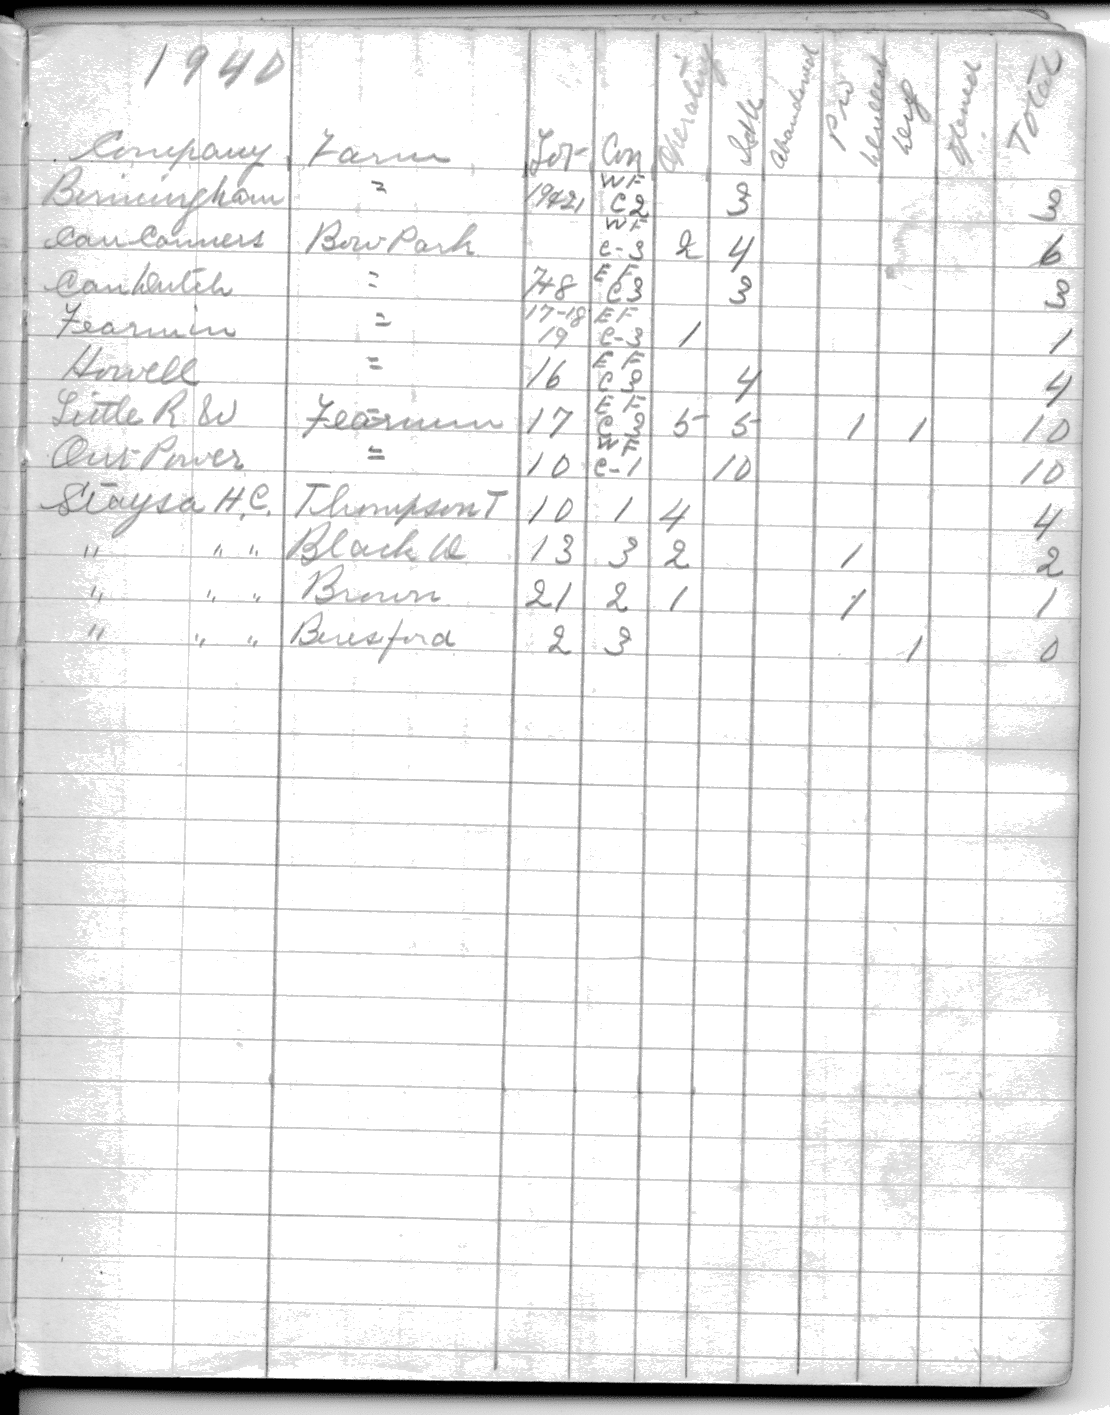 1940
Company Farm Lot Con Operating Idle Abandoned Pro Drilled Dry Total
Birmingham " 19&21 WF C2 3 3
Can Canners Bow Park WF C-3 2 4 6
Can Dutch " 7+8 EF C3 3 3
Fearmin " 17-18 19 EF C-3 1 1
Howell " 16 EF C3 4 4
Little R W Fearmin 17 EF C3 5 5 1 1 10
Ont Power = 10 WF C-1 10 10
Staysa H.C. Thompson T 10 1 4 4
" " " Black W 13 3 2 1 2
" " " Brown 21 2 1 1 1
" " " Beresford 2 3 1 0